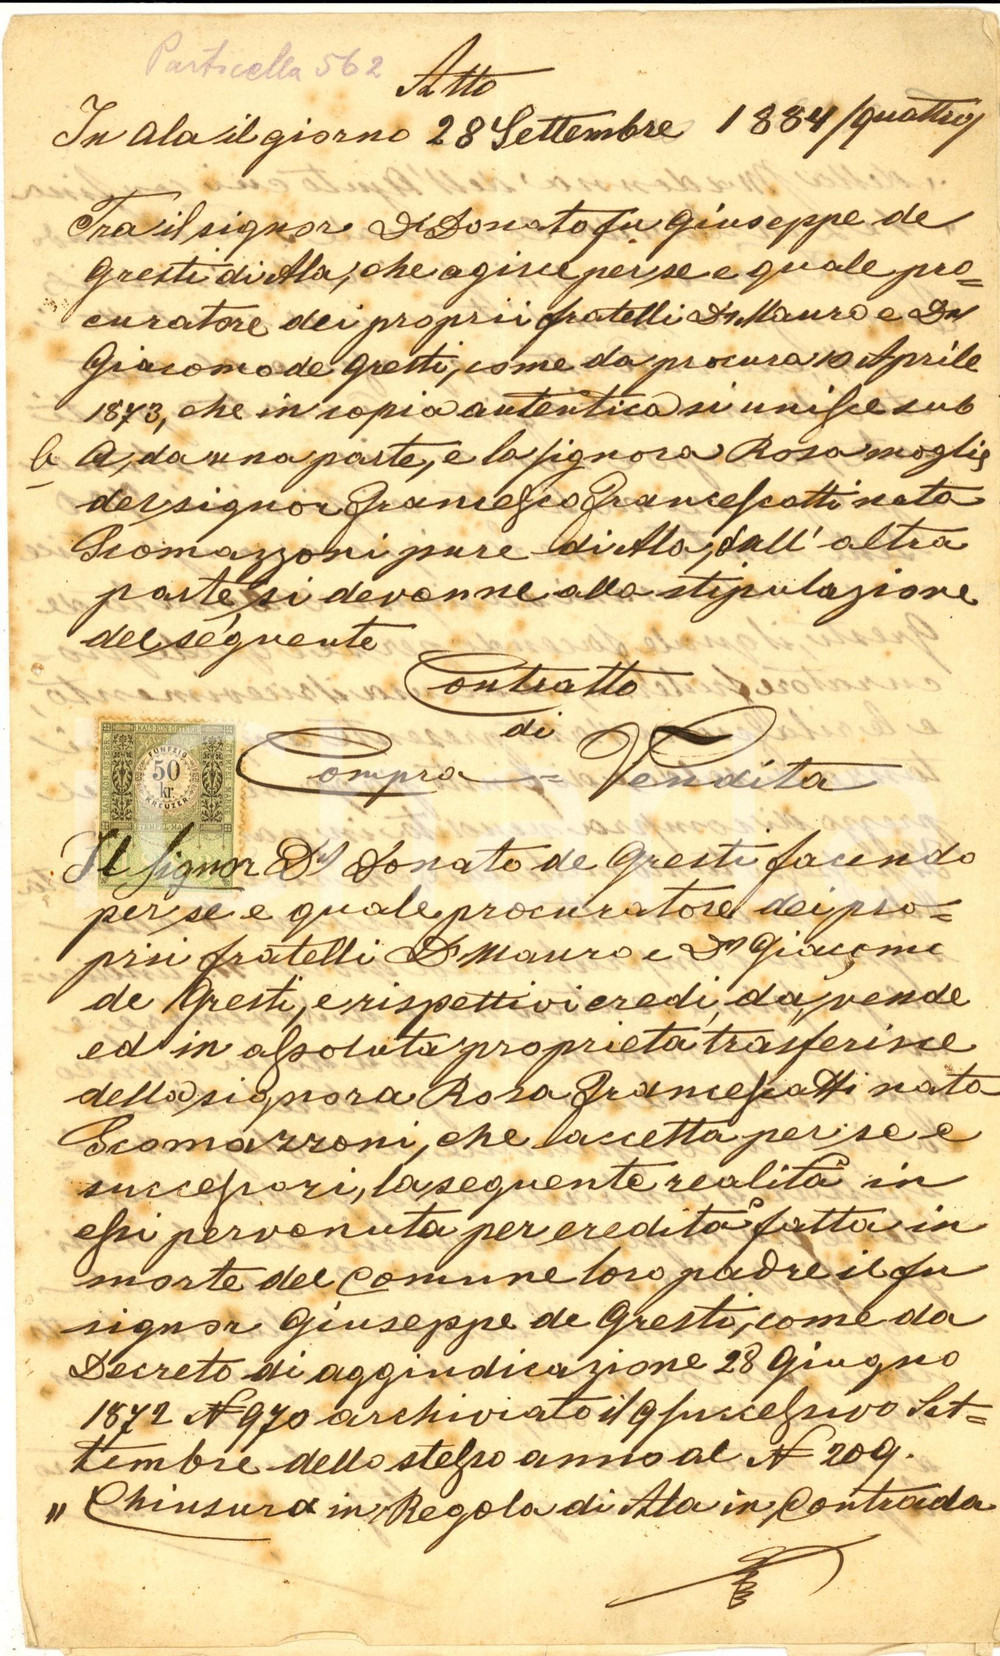 Particella 562
Atto
In Ala il giorno 28 Settembre 1884/quattro/
Tra il signor Dr Donato fu Giuseppe de
Gresti di Ala, che agisce per se e quale pro=
curatore dei proprii fratelli Dr Mauro e Dr
Giacomo de Gresti, come da procura 10 Aprile
1873, che in copia autentica si unisce sub
A, da una parte, e la signora Rosa moglie
del signor Francesco Francescatti nata
Scomazzoni pure di Ala, dall'altra
parte, si devenne alla stipulazione
del seguente
Contratto
di
Compra = Vendita
FÜNFZIG
50
kr.
KREUZER
Il signor Dr Donato de Gresti facendo
per se e quale procuratore dei pro=
prii fratelli Dr Mauro e Dr Giacomo
de Gresti, e rispettivi eredi, da, vende
ed in assoluta proprietà trasferisce
della signora Rosa Francescatti nata
Scomazzoni, che l'accetta per se e
successori, la seguente realità in
essi pervenuta per eredità fatta in
morte del comune loro padre il fu
signor Giuseppe de Gresti, come da
Decreto di aggiudicazione 28 Giugno
1872 N 970 archiviato il 9 successivo Set=
tembre dello stesso anno al N 209.
" Chiusura in Regola di Ala in Contrada